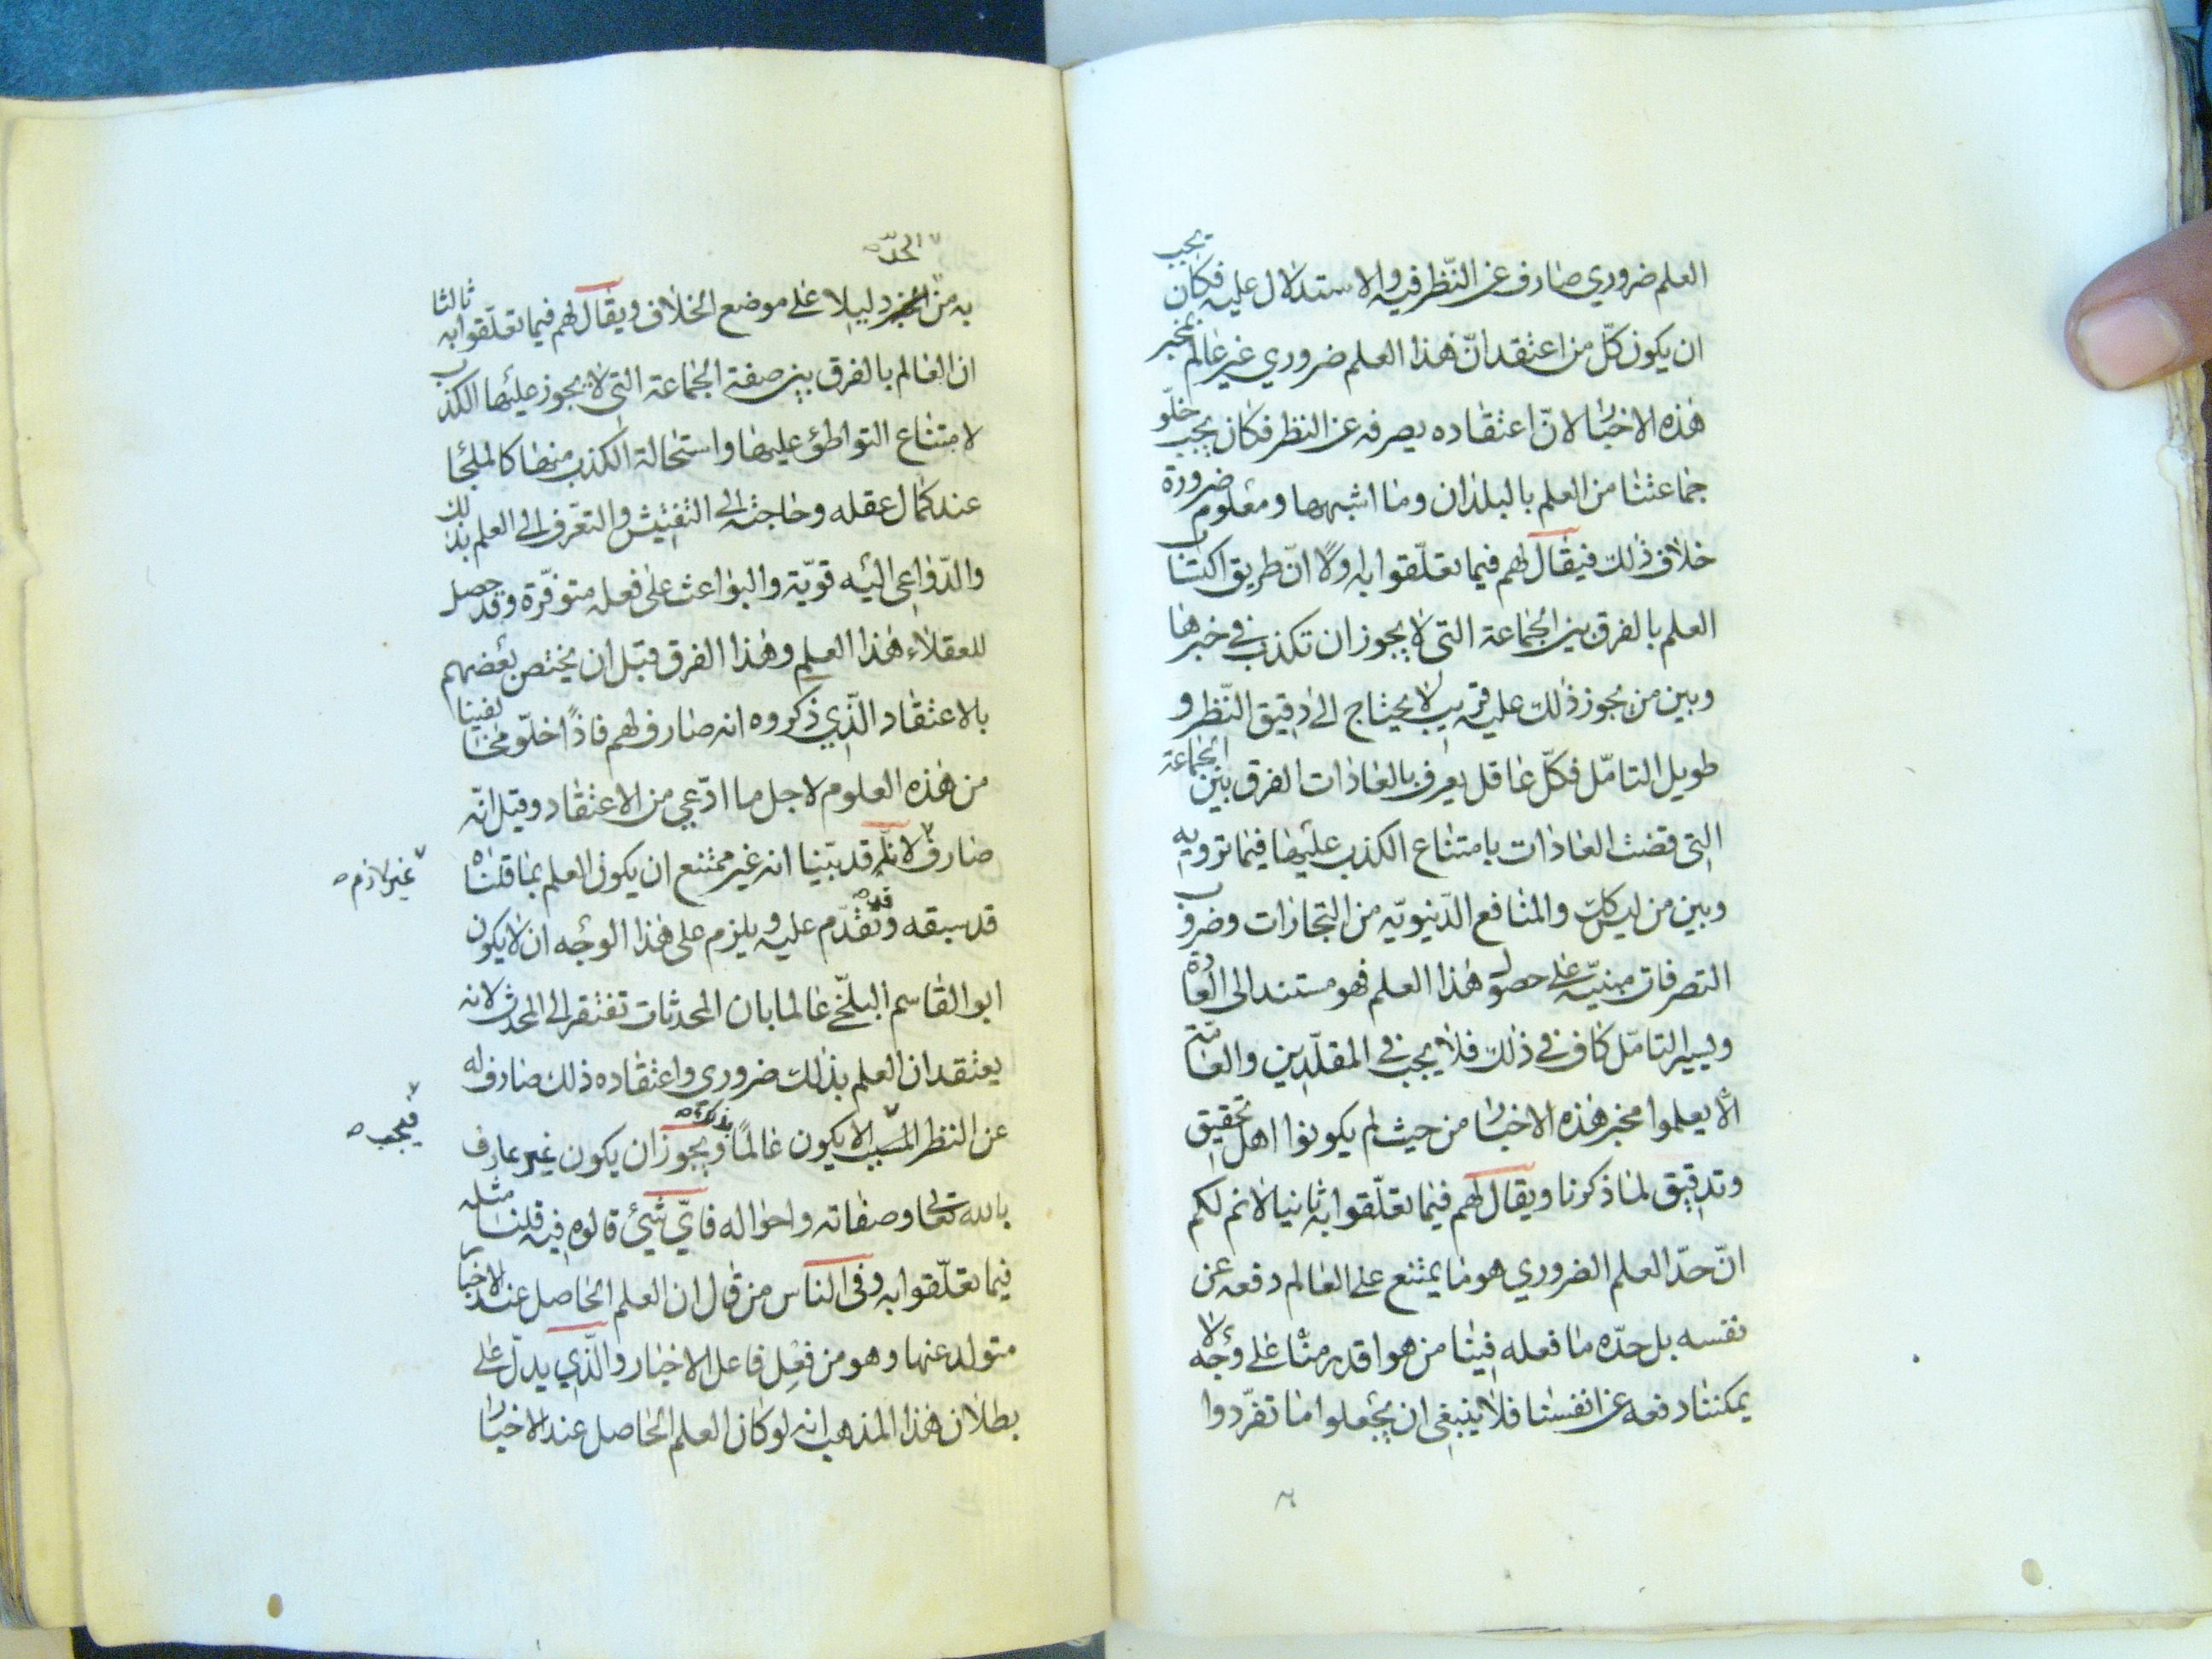 العلم ضروري صارف عن النّظر فيه والاستدلال عليه فكان يجب
ان يكون كلّ من اعتقد انّ هذا العلم ضروري غير عالم بمخبر
هذه الاخبار لانّ اعتقاده يصرفه عن النظر فكان يجب خلّو
جماعتنا من العلم بالبلدان وما اشبهها ومعلوم ضرورة
خلاف ذلك فيقال لهم فيما تعلّقوا به اولاً انّ طريق اكتساب
العلم بالفرق بين الجماعة التى لا يجوز ان تكذب في خبرها
وبين من يجوز ذلك عليه قريب لا يحتاج الى دقيق النّظر و
طويل التامّل فكلّ عاقل يعرف بالعادات الفرق بين الجماعة
التى قضت العادات بامتناع الكذب عليها فيما ترويه
وبين من ليس كك والمنافع الدّنيويّه من التجارات وضروب
التصرفات مبنيّة على حصول هذا العلم فهو مستند الى العادة
ويسير التامّل كاف في ذلك فلا يجب في المقلّدين والعامّة
الّا يعلموا مخبر هذه الاخبار من حيث لم يكونوا اهل تحقيق
وتدقيق لما ذكرنا ويقال لهم فيما تعلّقوا به ثانيا لا نم لكم
انّ حدّ العلم الضروري هو ما يمتنع على العالم دفعه عن
نفسه بل حدّه ما فعله فينا من هو اقدر منّا على وجه لا
يمكننا دفعه عن انفسنا فلا ينبغى ان يجعلوا ما تفرّدوا
الحدّ
به من دليلا على موضع الخلاف ويقال لهم فيما تعلّقوا به ثالثا
ان العالم بالفرق بين صفة الجماعة التى لا يجوز عليها الكذب
لامتناع التواطؤ عليها واستحالة الكذب منها كالملجأ
عند كمال عقله وحاجته الى التفتيش والتعّرف الى العلم بذلك
والدّواعى اليه قويّة والبواعث على فعله متوفّرة وقد حصل
للعقلاء هذا العلم وهذا الفرق قبل ان يختص بعضهم
بالاعتقاد الّذي ذكروه انه صارف لهم فاذاً خلّو مخالفينا
من هذه العلوم لاجل ما ادّعي من الاعتقاد وقيل انّه
صارف لانه قد بيّنا انه غير ممتنع ان يكون العلم بما قلناه
غير لازم
قد سبقه وتقدّم عليه ويلزم على هذا الوجه ان لا يكون
ابو القاسم البلخّي عالما بان المحدثات تفتقر الى المحدث لانه
يعتقد ان العلم بذلك ضروري واعتقاده ذلك صارف له
عن النظر الا يكون عالماً بذلك ويجوز ان يكون غير عارف
فيجب
بالله تعالى وصفاته واحواله فايّ شيئ قالوه فيه قلنا مثله
فيما تعلّقوا به وفى الناس من قال ان العلم الحاصل عند الاخبار
متولد عنها وهو من فعل فاعل الاخبار والّذي يدلّ على
بطلان هذا المذهب انه لو كان العلم الحاصل عند الاخبار